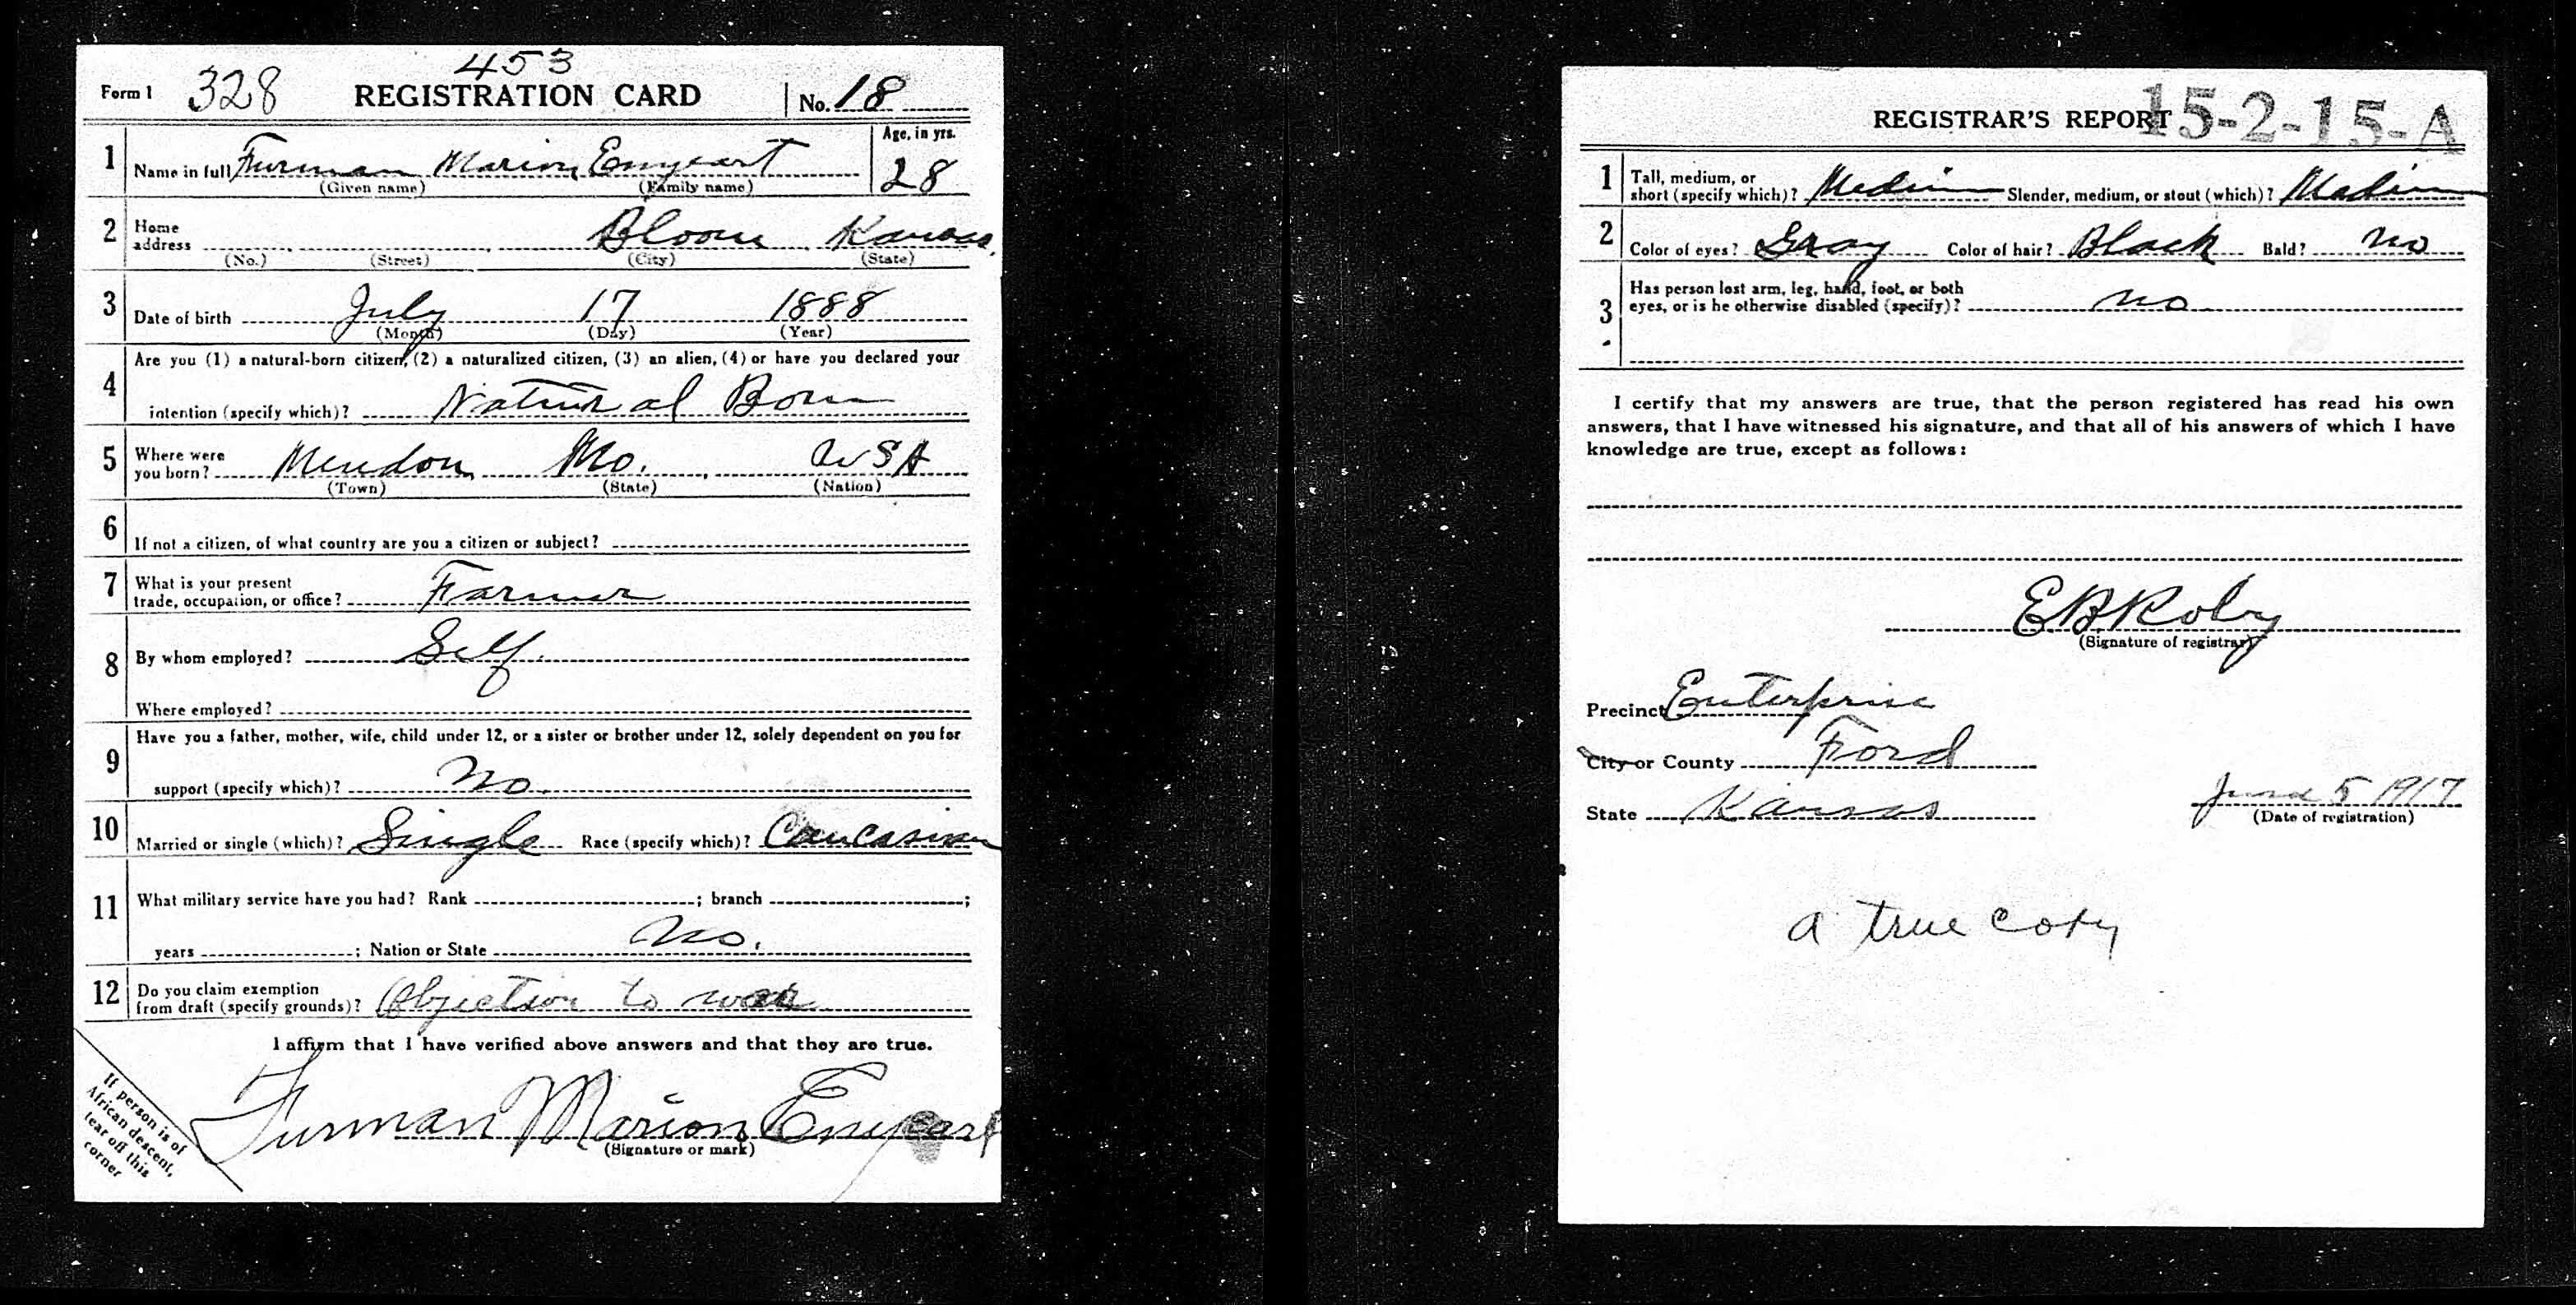 453
Form 1 328 REGISTRATION CARD No. 18
1 Name in full Furman Marion Enyeart Age, in yrs. 28
(Given name) (Family name)
2 Home address Bloom Kansas.
(No.) (Street) (City) (State)
3 Date of birth July 17 1888
(Month) (Day) (Year)
4 Are you (1) a natural-born citizen, (2) a naturalized citizen, (3) an alien, (4) or have you declared your
intention (specify which)? Natural Born
5 Where were you born? Mendon, Mo., USA
(Town) (State) (Nation)
6 If not a citizen, of what country are you a citizen or subject?
7 What is your present trade, occupation, or office? Farmer
8 By whom employed? Self.
Where employed?
9 Have you a father, mother, wife, child under 12, or a sister or brother under 12, solely dependent on you for
support (specify which)? No.
10 Married or single (which)? Single Race (specify which)? Caucasian
11 What military service have you had? Rank ; branch ;
years ; Nation or State No.
12 Do you claim exemption from draft (specify grounds)? Objection to war
I affirm that I have verified above answers and that they are true.
Furman Marion Enyeart
(Signature or mark)
If person is of
African descent,
tear off this
corner
REGISTRAR'S REPORT 15-2-15-A
1 Tall, medium, or short (specify which)? Medium Slender, medium, or stout (which)? Medium
2 Color of eyes? Gray Color of hair? Black Bald? No
3 Has person lost arm, leg, hand, foot, or both
eyes, or is he otherwise disabled (specify)? No
I certify that my answers are true, that the person registered has read his own
answers, that I have witnessed his signature, and that all of his answers of which I have
knowledge are true, except as follows:
E B Roby
(Signature of registrar)
Precinct Enterprise
City or County Ford
State Kansas June 5 1917
(Date of registration)
a true copy